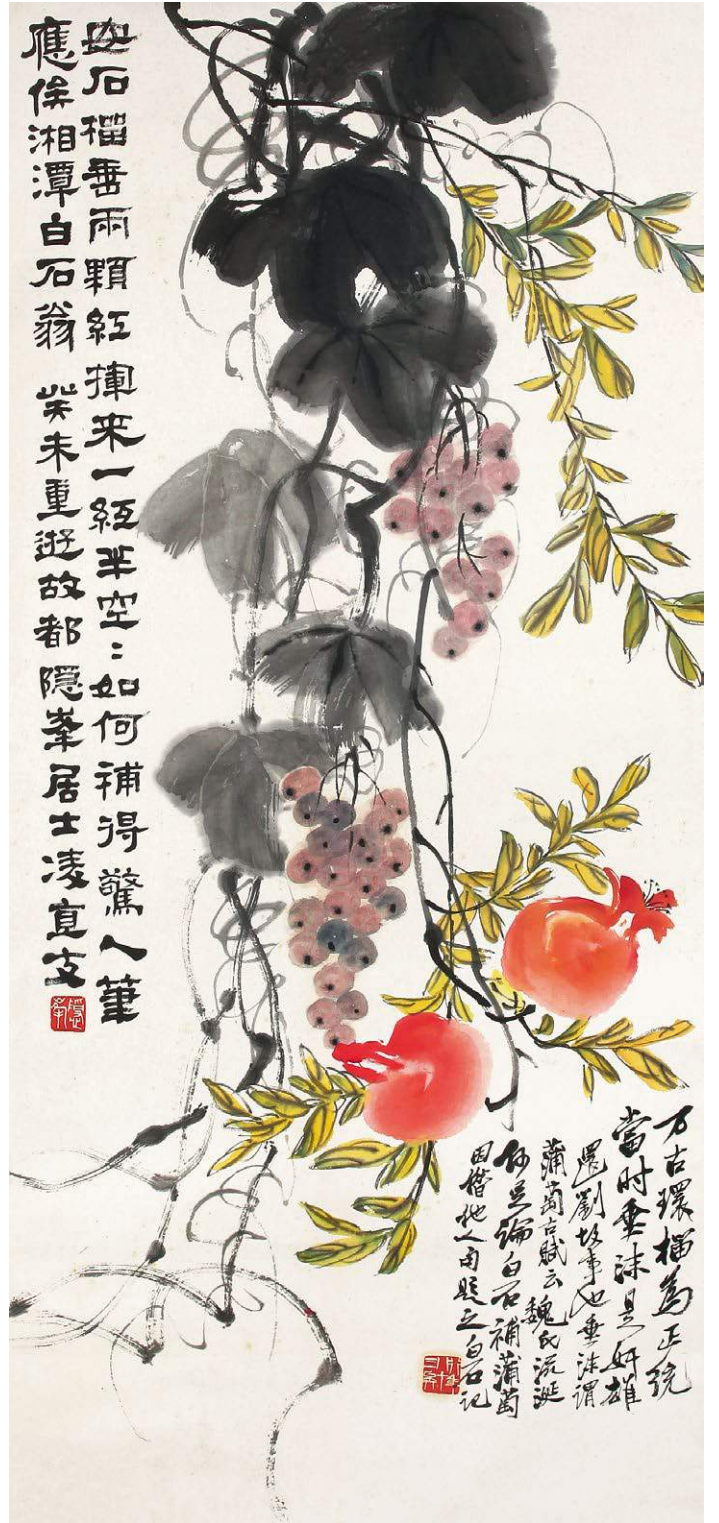 石榴垂兩顆紅揮來一紙半空:如何補得驚人筆
應俟湘潭白石翁 癸未重遊故都隱峯居士凌直支
隱峯
万古環榴為正統
當时垂沫是奸雄
還劉故事也垂沫謂
蒲萄古賦云魏氏流涎
論白石補蒲萄
因借他人句題之白石記